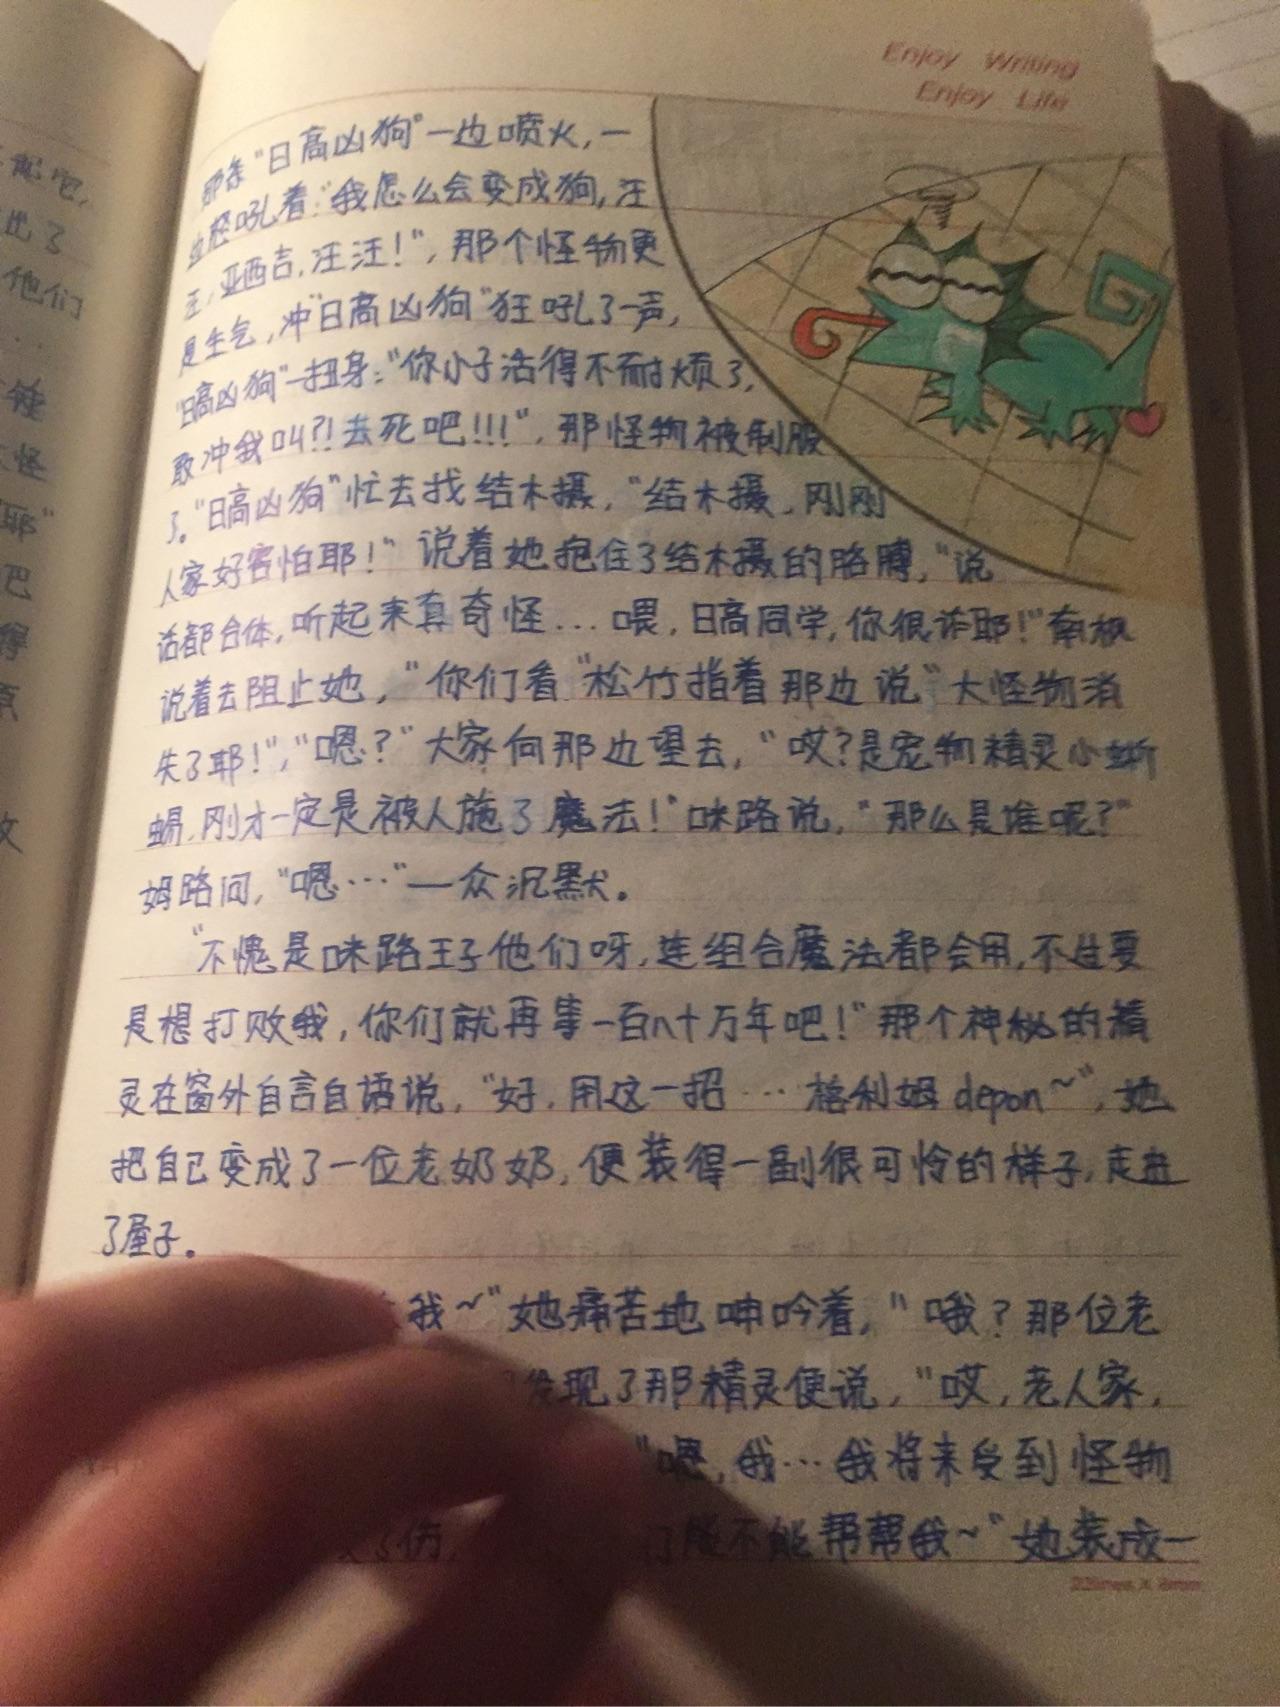 Enjoy Writing
Enjoy Life
那条“日高凶狗”一边喷火，一
边怒吼着：“我怎么会变成狗，汪
汪，亚西吉，汪汪！”，那个怪物更
是生气，冲“日高凶狗”狂吼了一声，
“日高凶狗”一扭身：“你小子活得不耐烦了，
敢冲我叫？！去死吧！！！”，那怪物被制服
了。“日高凶狗”忙去找结木摄，“结木摄，刚刚
人家好害怕耶！”说着她抱住了结木摄的胳膊，“说
话都合体，听起来真奇怪…喂，日高同学，你很诈耶！”南枫
说着去阻止她，“你们看”松竹指着那边说“大怪物消
失了耶！”，“嗯？”大家向那边望去，“哎？是宠物精灵小蜥
蜴，刚才一定是被人施了魔法！”咪路说，“那么是谁呢？”
姆路问，“嗯…”一众沉默。
“不愧是咪路王子他们呀，连组合魔法都会用，不过要
是想打败我，你们就再等一百八十万年吧！”那个神秘的精
灵在窗外自言自语说，“好，用这一招…格利姆depon~”，她
把自己变成了一位老奶奶，便装得一副很可怜的样子，走进
了屋子。
我~”她痛苦地呻吟着，“哦？那位老
发现了那精灵便说，“哎，老人家，
“嗯，我…我将来受到怪物
了伤，能不能帮帮我~”她装成一